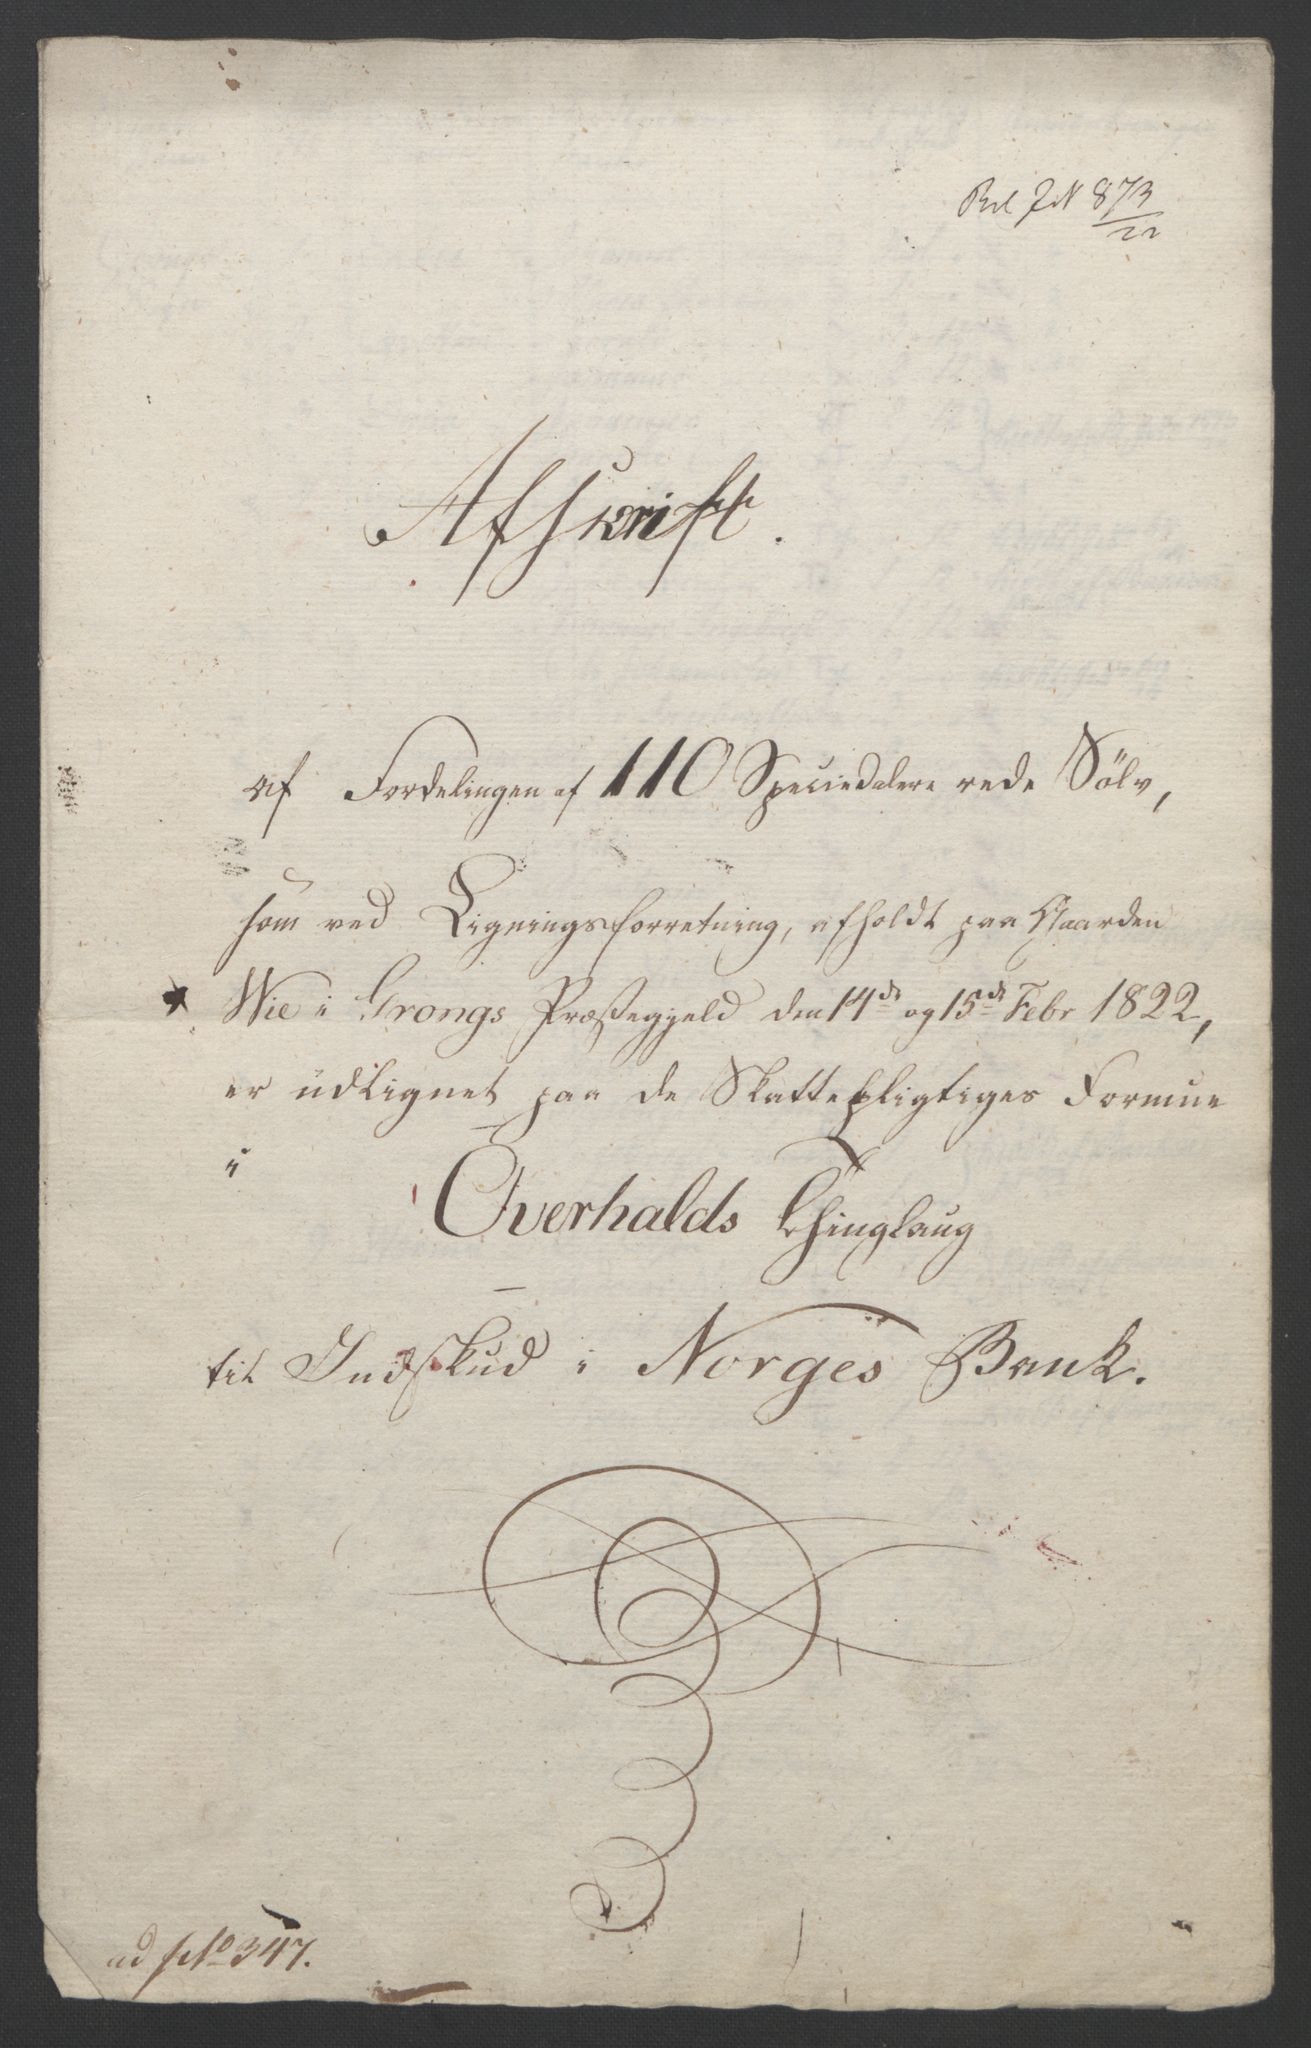 873
22
Afskrivt.
af Fordelingen af 110 Speciedalere rede Sölv,
som ved Ligningsforretning, afholdt paa Gaarden
Wie i Grongs Præstegjeld den 14de og 15de Febr 1822,
er üdlignet paa de Skattepligtiges Formue
i
Overhalds Thinglaug
til Indskud i Norges Bank.
ad No 347.